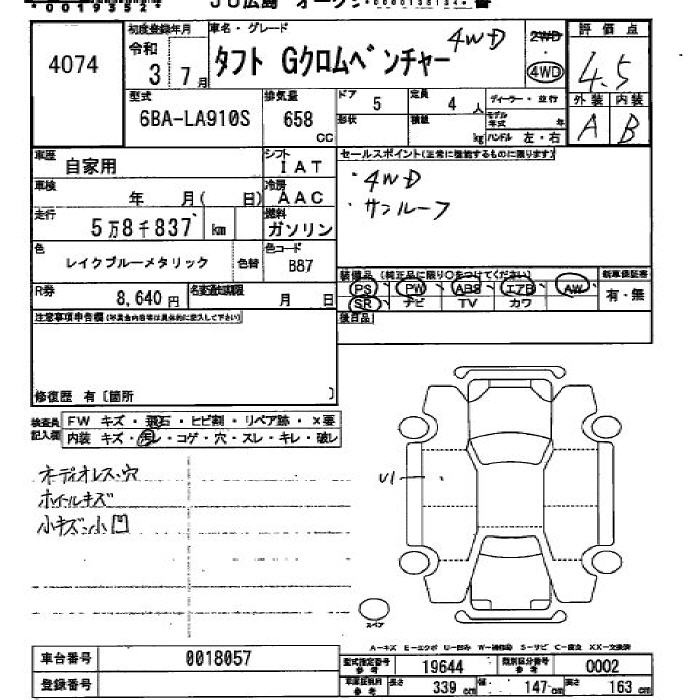 JU広島
4074
初度登録年月
令和
3年 7月
車名・グレード
タフト Gクロムベンチャー 4WD
2WD
4WD
評価点
4.5
外装 内装
A B
型式
6BA-LA910S
排気量
658
cc
ドア
5
定員
4人
形状
積載
kg
ディーラー・並行
モデル年式 年
ハンドル 左・右
車歴
自家用
シフト
IAT
車検
年 月( 日)
冷房
AAC
走行
5万8千837 km
燃料
ガソリン
色
レイクブルーメタリック
色替
色コード
B87
R券
8,640円
名変通知期限
月 日
セールスポイント(正常に機能するものに限ります)
・4WD
・サンルーフ
装備品(純正品に限り○をつけてください)
PS PW ABS エアB AW
SR ナビ TV カワ
新車保証書
有・無
後日品
注意事項申告欄(写真含内容等は具体的に記入して下さい)
修復歴 有〔箇所 〕
検査員記入欄
FW キズ・飛石・ヒビ割・リペア跡・X要
内装 キズ・汚レ・コゲ・穴・スレ・キレ・破レ
ホイールキズ
小キズ小凹
U1
スペア
A-キズ E-エクボ U-凹み
車台番号
0018057
登録番号
型式指定番号
参考
19644
類別区分番号
参考
0002
長さ
339 cm
幅
147 cm
高さ
163 cm